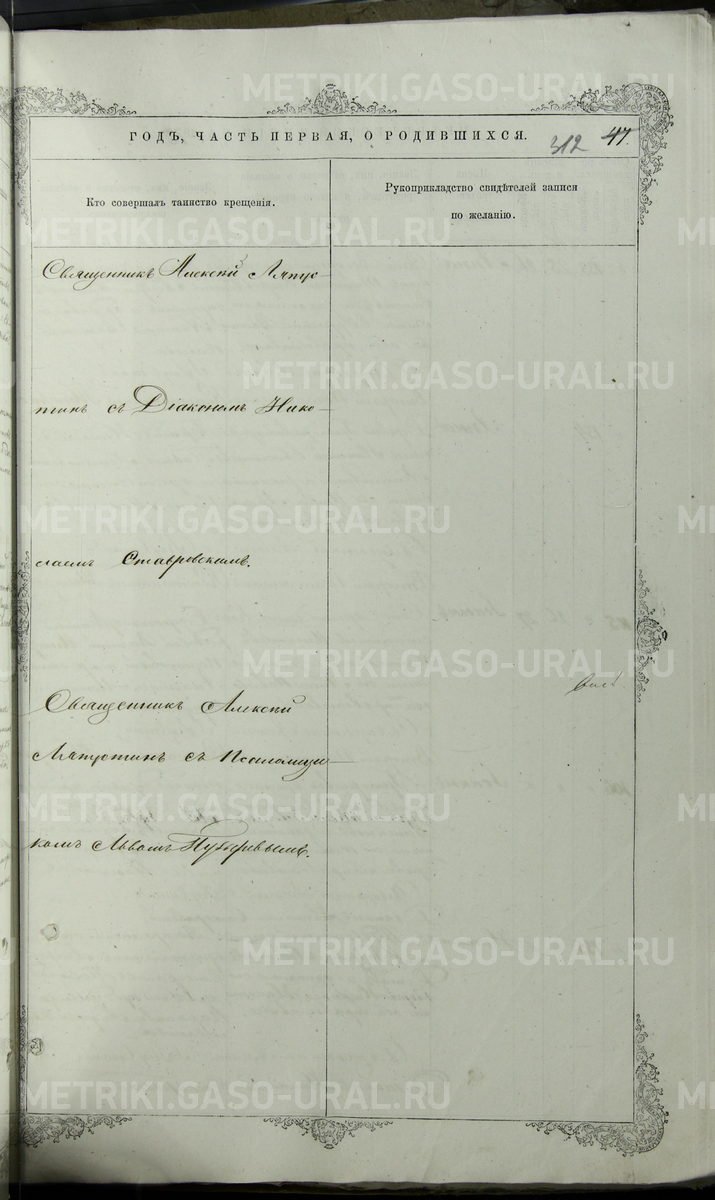 ГОДЪ, ЧАСТЬ ПЕРВАЯ, О РОДИВШИХСЯ.
312 47.
Кто совершалъ таинство крещенія.
Рукоприкладство свидѣтелей записи
по желанію.
Священникъ Алексій Ляпус-
тинъ съ Діакономъ Нико-
лаемъ Ставровскимъ.
Священникъ Алексій
Ляпустинъ съ Псаломщи-
комъ Львомъ
METRIKI.GASO-URAL.RU